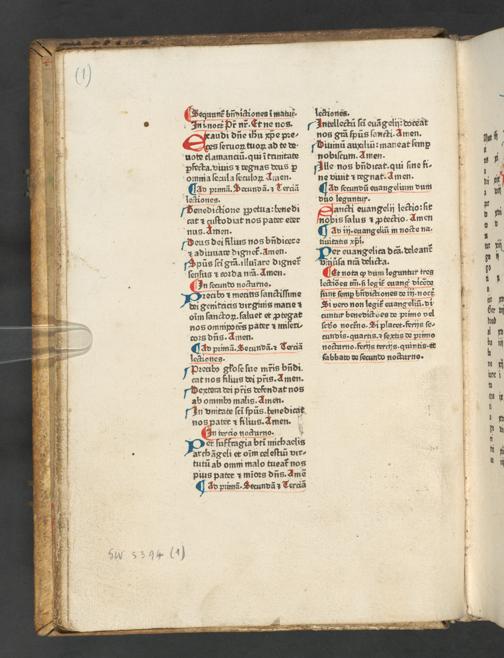 (1)
Sequunt͛ bn̄dictiones ī matut̕.
In i. noct̕. Pr̄ nr̄. Et ne nos.
Exaudi dn̄e ihu xp̄e pre-
ces seruoꝝ tuoꝝ ad te de-
uote clamanciū. qui ī trinitate
ꝑfecta. viuis ⁊ regnas deus ꝑ
omnia secula seculoꝝ. Amen.
Ad primā. Secundā. ⁊ Terciā
lectiones.
Benedictione ꝑpetua: benedi
cat ⁊ custodiat nos pater eter
nus. Amen.
Deus dei filius nos bn̄dicere
⁊ adiuuare dignet͛. Amen.
Spūs sc̄i grā. illūare dignet͛
sensus ⁊ corda nr̄a. Amen.
In secundo nocturno.
Precibꝰ ⁊ meritis sanctissime
dei genitricis virginis marie ⁊
oīm sanctoꝝ. saluet et ꝓtegat
nos omnipotēs pater ⁊ miseri
cors dn̄s. Amen.
Ad primā. Secundā. ⁊ Terciā
lectiones.
Precibꝰ gl̄ose sue mr̄is bn̄di.
cat nos filius dei pr̄is. Amen.
Dextera dei pr̄is defendat nos
ab omnibꝰ malis. Amen.
In vnitate sc̄i spūs. benedicat
nos pater ⁊ filius. Amen.
In tercio nocturno.
Per suffragia bt̄i michaelis
archāgeli et oīm celestiū vir-
tutū ab omni malo tueat͛ nos
pius pater ⁊ mīcors dn̄s. Amē
Ad primā. Secundā ⁊ Terciā
lectiones.
Intellectū sc̄i euāgelij: doceat
nos grā spūs sancti. Amen.
Diuinū auxiliū: maneat semꝑ
nobiscum. Amen.
Ille nos bn̄dicat. qui sine fi-
ne viuit ⁊ regnat. Amen.
Ad secundū euangelium dum
duo leguntur.
Sancti euangelij lectio: sit
nobis salus ⁊ ꝓtectio. Amen
Ad iij. euangeliū in nocte na-
tiuitatis xp̄i.
Per euangelica dc̄a. deleant͛
vniūsa nr̄a delicta.
Et nota ꝙ dum leguntur tres
lectiōes tm̄. si legit͛ euang̕ dicēte
sunt semꝑ bn̄dictiones de iij. noct̕
Si vero non legit͛ euangeliū. di-
cuntur benedictiōes de primo vel
sc̄do noct̕no. Si placet. ferijs se-
cundis. quartis. ⁊ sextis de primo
nocturno. ferijs tercijs. quintis. et
sabbatꝰ de secundo nocturno.
GW 5394 (1)